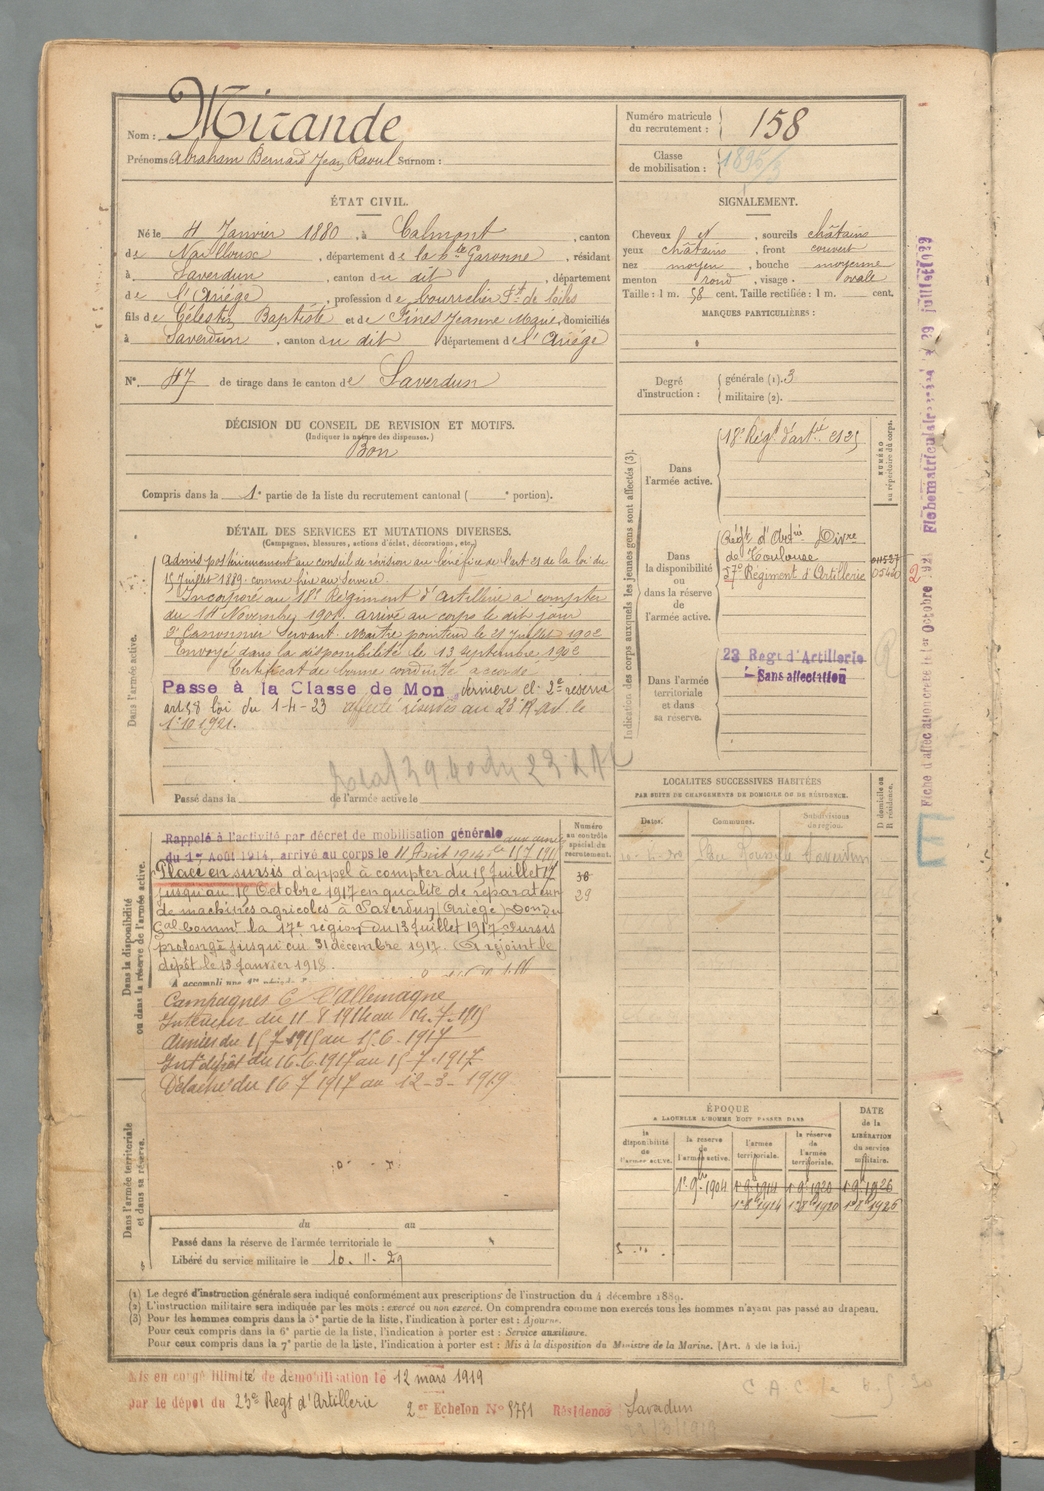 Nom : Mirande
Prénoms Abraham Bernard Jean Raoul Surnom :
Numéro matricule du recrutement : 158
Classe de mobilisation : 1895/3
ÉTAT CIVIL.
Né le 4 Janvier 1880, à Calmont, canton
de Nailloux, département de la hte Garonne, résidant
à Saverdun, canton du dit, département
de l'Ariége, profession de bourrelier ft de bâches
fils de Célestin Baptiste et de Pinès Jeanne Marie, domiciliés
à Saverdun, canton du dit département de l'Ariége
N° 47 de tirage dans le canton de Saverdun
SIGNALEMENT.
Cheveux N, sourcils châtains
yeux châtains, front couvert
nez moyen, bouche moyenne
menton rond, visage ovale
Taille : 1 m. 58 cent. Taille rectifiée : 1 m. cent.
MARQUES PARTICULIÈRES :
Degré d'instruction : générale (1). 3
militaire (2).
DÉCISION DU CONSEIL DE REVISION ET MOTIFS.
(Indiquer la nature des dispenses.)
Bon
Compris dans la 1e partie de la liste du recrutement cantonal ( e portion).
DÉTAIL DES SERVICES ET MUTATIONS DIVERSES.
(Campagnes, blessures, actions d'éclat, décorations, etc.)
Dans l'armée active.
Admis postérieurement au conseil de révision au bénéfice de l'art 21 de la loi du
15 Juillet 1889 comme frère au Service.
Incorporé au 18e Régiment d'Artillerie à compter
du 14 Novembre 1901, arrivé au corps le dit jour
2e Canonnier Servant. Maître pointeur le 21 Juillet 1902
Envoyé dans la disponibilité le 13 Septembre 1902
Certificat de bonne conduite accordé
Passe à la Classe de Mon dernière cl. 2e réserve
art 58 loi du 1-4-23 affecté réserves au 23e R. Art. le
1-10 1921.
Passé dans la de l'armée active le
Indication des corps auxquels les jeunes gens sont affectés (3).
NUMÉRO au répertoire du corps.
Dans l'armée active.
18e Régt d'artie
Dans la disponibilité ou dans la réserve de l'armée active.
Régt d'Artie Divre
de Toulouse
57e Régiment d'Artillerie
Dans l'armée territoriale et dans sa réserve.
23 Regt d'Artillerie
Sans affectation
LOCALITÉS SUCCESSIVES HABITÉES
PAR SUITE DE CHANGEMENTS DE DOMICILE OU DE RÉSIDENCE.
Dates. Communes. Subdivisions de région. D domicile ou R résidence.
Saverdun
Dans la disponibilité ou dans la réserve de l'armée active.
Numéro au contrôle spécial du recrutement.
38
29
Rappelé à l'activité par décret de mobilisation générale
du 1er Août 1914, arrivé au corps le 11 Août 1914
Placé en sursis d'appel à compter du 15 Juillet 17
jusqu'au 15 Octobre 1917 en qualité de réparateur
de machines agricoles à Saverdun (Ariége) Don du
Gal Commt la 17e région du 13 Juillet 1917. Sursis
prolongé jusqu'au 31 décembre 1917. A rejoint le
dépôt le 13 Janvier 1918.
Campagnes C. l'Allemagne
Intérieur du 11-8 1914 au 14.7.1915
Armées du 15 7 1915 au 15.6.1917
Intr dépôt du 16.6.1917 au 15.7.1917
Détaché du 16 7 1917 au 12-3-1919
Dans l'armée territoriale et dans sa réserve.
du au
Passé dans la réserve de l'armée territoriale le
Libéré du service militaire le 10-11-29
ÉPOQUE
A LAQUELLE L'HOMME DOIT PASSER DANS
la disponibilité de l'armée active.
la réserve de l'armée active.
l'armée territoriale.
la réserve de l'armée territoriale.
DATE de la LIBÉRATION du service militaire.
1er 9bre 1904 1er 9 1914 1er 9 1920 1er 9 1926
1er 8 1914 1er 8 1920 1er 8 1926
(1) Le degré d'instruction générale sera indiqué conformément aux prescriptions de l'instruction du 4 décembre 1889.
(2) L'instruction militaire sera indiquée par les mots : exercé ou non exercé. On comprendra comme non exercés tous les hommes n'ayant pas passé au drapeau.
(3) Pour les hommes compris dans la 5e partie de la liste, l'indication à porter est : Ajourné.
Pour ceux compris dans la 6e partie de la liste, l'indication à porter est : Service auxiliaire.
Pour ceux compris dans la 7e partie de la liste, l'indication à porter est : Mis à la disposition du Ministre de la Marine. (Art. 4 de la loi.)
Mis en congé illimité de démobilisation le 12 mars 1919
par le dépôt du 23e Regt d'Artillerie 2e Echelon N° 5751 Résidence Saverdun